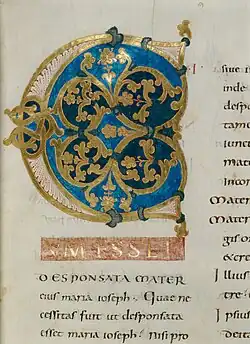 C
UM ESSET
DESPONSATA MATER
eius maria ioseph. Quae ne
cessitas fuit ut desponsata
esset maria ioseph? Nisi pro
siue
inde
desp
tame
iunct
mat
Mater
Mater
gis
&cre
Illius
tre
Ipsius